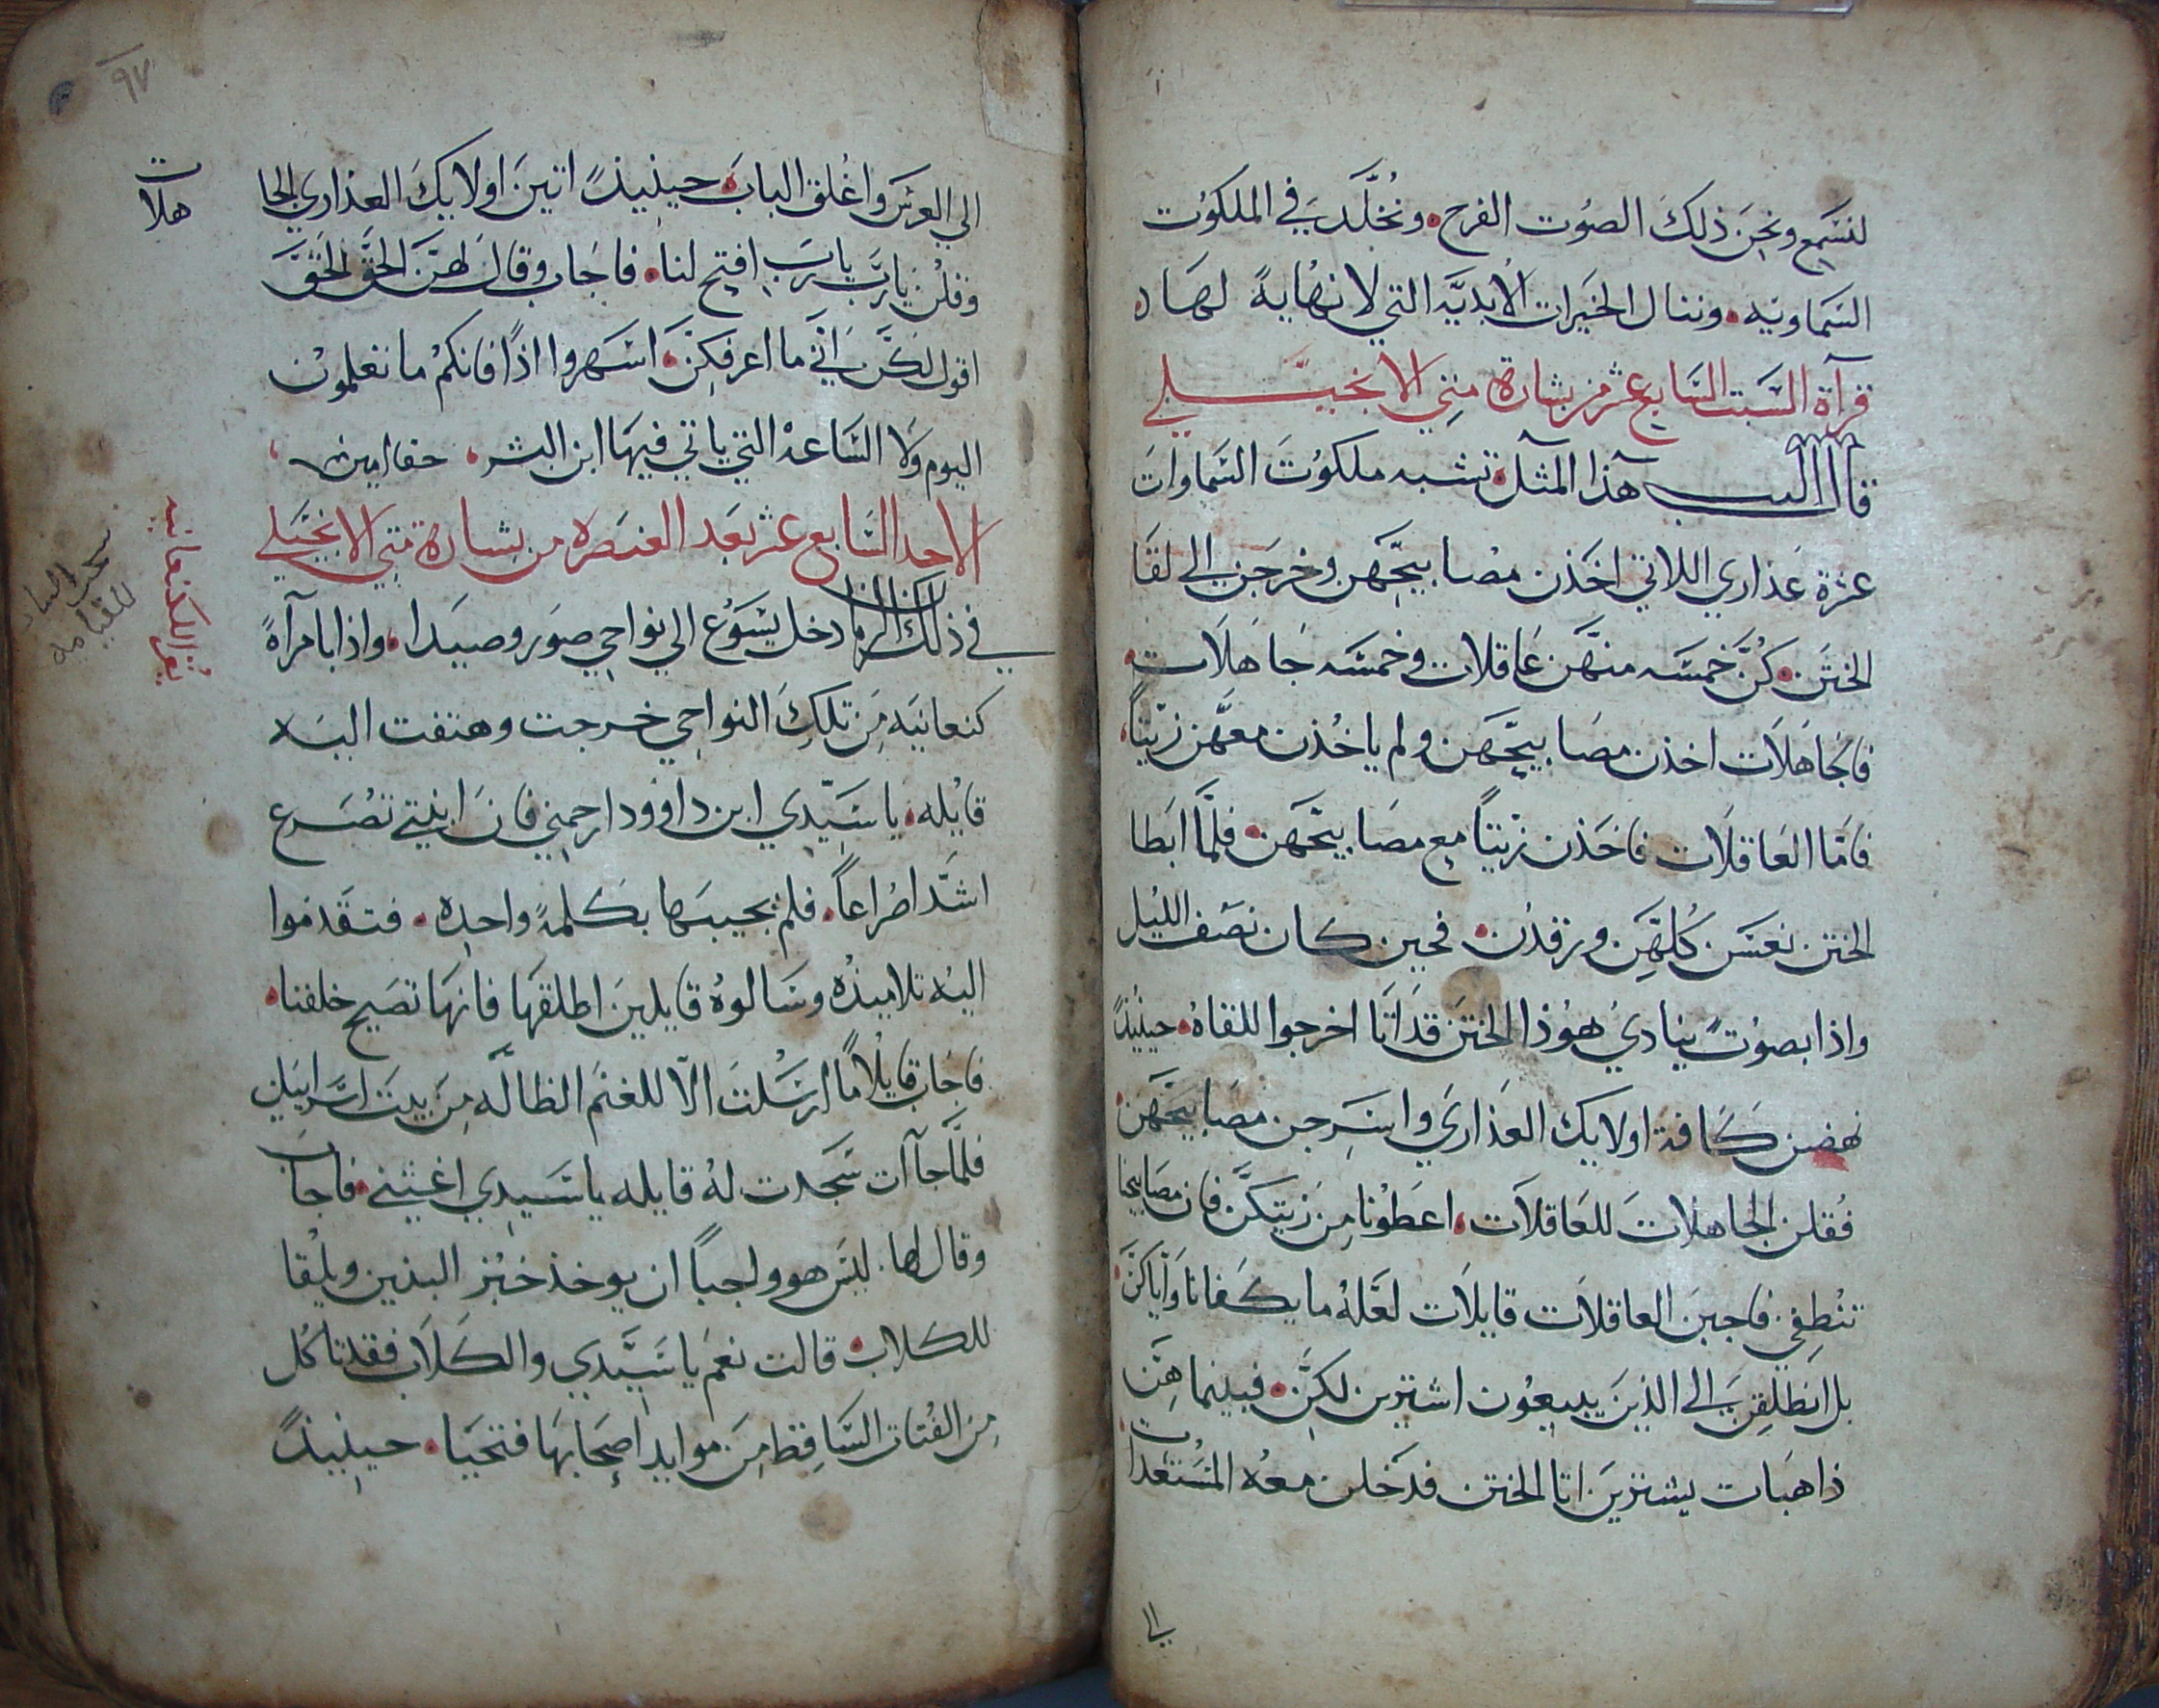 لنسمع ونحن ذلك الصوت الفرح. ونخلد في الملكوت
السماويه. وننال الخيرات الابديه التي لا نهاية لها ه
قرآة السبت السابع عشر من بشارة متي الانجيلي
قال الرب هذا المثل. تشبه ملكوت السماوات
عشرة عذاري اللاتي اخذن مصابيحهن وخرجن الي لقا
الختن. كن خمسه منهن عاقلات وخمسه جاهلات.
فالجاهلات اخذن مصابيحهن ولم ياخذن معهن زيتا.
فاما العاقلات فاخذن زيتا مع مصابيحهن. فلما ابطا
الختن نعسن كلهن ورقدن. فحين كان نصف الليل
واذا بصوت ينادي هوذا الختن قد اتا اخرجوا للقاه. حينيذ
نهضن كافة اولايك العذاري واسرجن مصابيحهن.
فقلن الجاهلات للعاقلات. اعطونا من زيتكن فان مصابيحنا
تنطفي. فاجبن العاقلات قايلات لعله ما يكفانا واياكن.
بل انطلقن الي الذين يبيعون اشترين لكن. فبينما هن
ذاهبات يشترين اتا الختن فدخلن معه المستعدات
الي
٩٧
الي العرس واغلق الباب. حينيذ اتين اولايك العذاري الجا
هلات
وقلن يارب يارب افتح لنا. فاجاب وقال لهن الحق الحق
اقول لكن اني ما اعرفكن. اسهروا اذا فانكم ما تعلمون
اليوم ولا الساعة التي ياتي فيها ابن البشر. حقا امين
الاحد السابع عشر بعد العنصره من بشارة متي الانجيلي
في ذلك الزمان دخل يسوع الي نواحي صور وصيدا. واذا بامرآة
كنعانيه من تلك النواحي خرجت وهتفت اليه
قايله. يا سيدي ابن داوود ارحمني فان ابنتي تصرع
اشد اصراعا. فلم يجيبها بكلمة واحده. فتقدموا
اليه تلاميذه وسالوه قايلين اطلقها فانها تصيح خلفنا.
فاجاب قايلا ما ارسلت الا للغنم الظاله من بيت اسراييل
فلما جاآت سجدت له قايله يا سيدي اغيثني. فاجاب
وقال لها. ليس هو واجبا ان يوخذ خبز البنين ويلقا
للكلاب. قالت نعم يا سيدي والكلاب فقد تاكل
من الفتات الساقط من موايد اصحابها فتحيا. حينيذ